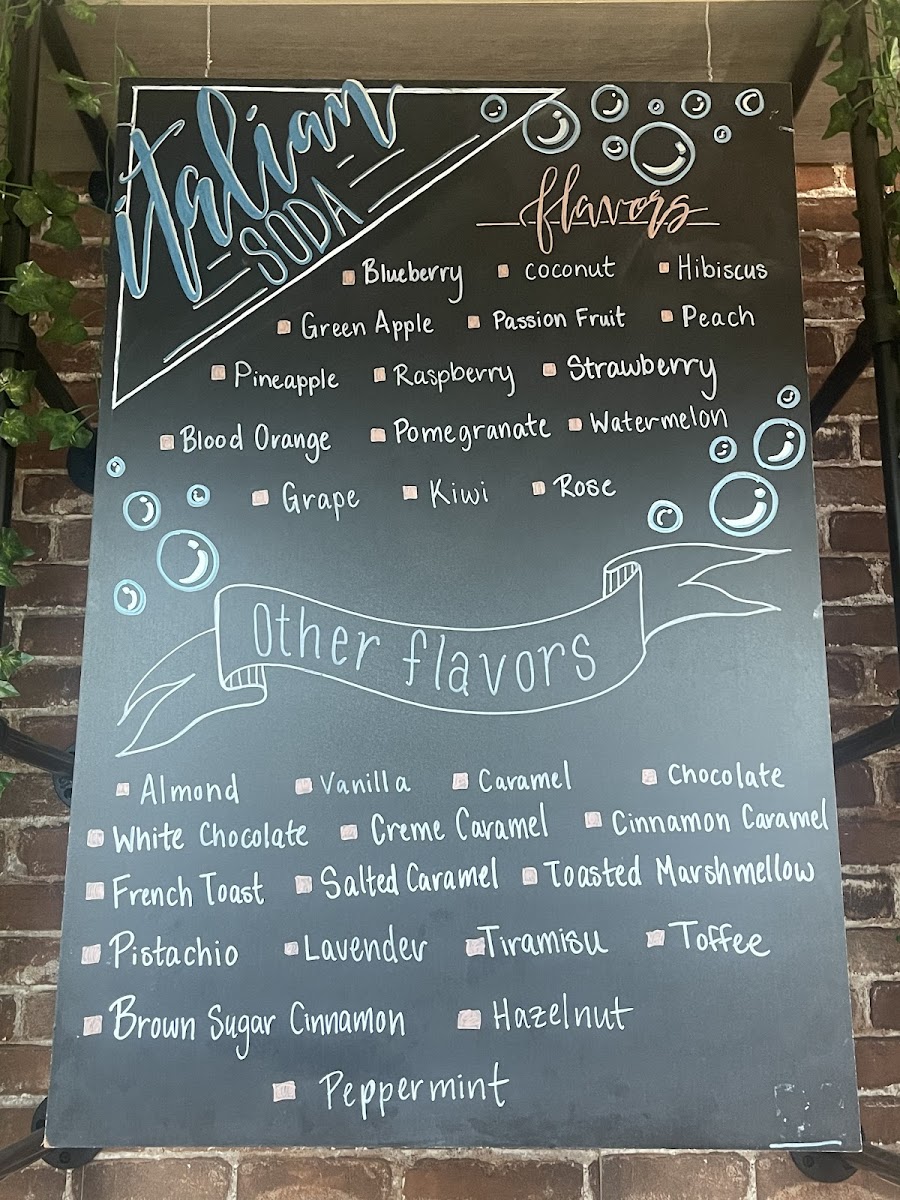 italian
SODA
flavors
Blueberry coconut Hibiscus
Green Apple Passion Fruit Peach
Pineapple Raspberry Strawberry
Blood Orange Pomegranate Watermelon
Grape Kiwi Rose
Other flavors
Almond Vanilla Caramel Chocolate
White Chocolate Creme Caramel Cinnamon Caramel
French Toast Salted Caramel Toasted Marshmellow
Pistachio Lavender Tiramisu Toffee
Brown Sugar Cinnamon Hazelnut
Peppermint